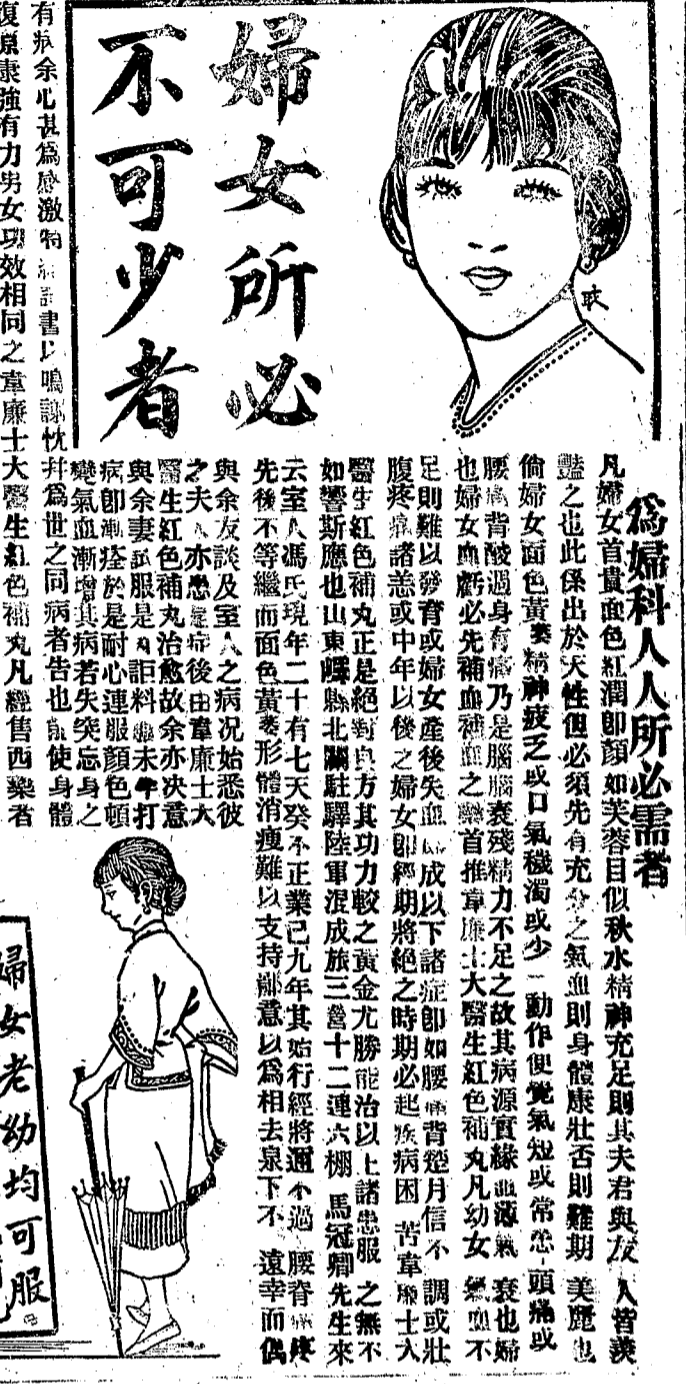 婦女所必
不可少者
為婦科人人所必需者
凡婦女首貴面色紅潤即顏如芙蓉目似秋水精神充足則其夫君與友人皆羨
豔之也此係出於天性但必須先有充分之氣血則身體康壯否則難期美麗也
倘婦女面色黃萎精神疲乏或口氣穢濁或少一動作便覺氣短或常患頭痛或
腰痛背酸遍身有痛乃是腦髓衰殘精力不足之故其病源實緣血薄氣衰也婦
也婦女血虧必先補血補血之藥首推韋廉士大醫生紅色補丸凡幼女氣血不
足則難以發育或婦女產後失血成以下諸症即如腰痛背楚月信不調或壯
腹疼痛諸恙或中年以後之婦女即經期將絕之時期必起疾病困苦韋廉士大
醫生紅色補丸正是絕對良方其功力較之黃金尤勝能治以上諸患服之無不
如響斯應也山東嶧縣北關駐驛陸軍混成旅三營十二連六棚馬冠卿先生來
云室人馮氏現年二十有七天癸不正業已九年其始行經將週不過腰脊痛疼
先後不等繼而面色黃萎形體消瘦難以支持鄙意以為相去泉下不遠幸而偶
與余友談及室人之病況始悉彼
之夫人亦患是症後由韋廉士大
醫生紅色補丸治愈故余亦決意
與余妻試服是丸詎料未半打
病即漸痊於是耐心連服顏色頓
變氣血漸增其病若失突忘身之
有病余心甚為感激特書以鳴謝忱并為世之同病者告也能使身體
復原康強有力男女功效相同之韋廉士大醫生紅色補丸凡經售西藥者
婦女老幼均可服